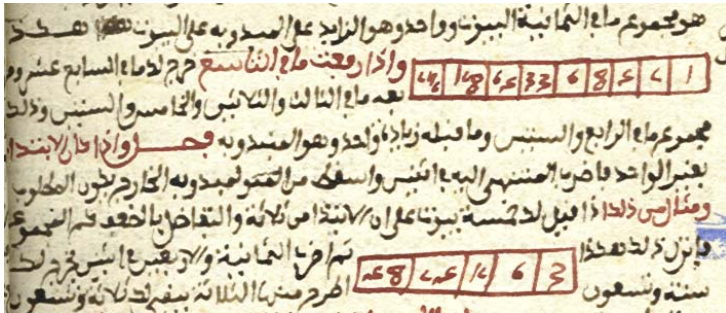 هو مجموع ما في الثمانية البيوت وواحد وهو الزايد على المبدو به على البيوت هكذا
1 2 4 8 16 32 64 128 256 واذا ربعت ما في التاسع خرج لك ما في السابع عشر
بعه ما في الثالث والثلاثين والخامس والستين وذلك
مجموع ما في الرابع والستين وما قبله زيادة واحد وهو المبدو به فصل واذا كان الابتدا
بغير الواحد فاضرب المنتهى اليه في اثنين واسقط من المبدو به الخارج يكون المطلوب
ومثال من ذلك اذا قيل لك خمسة بيوت على ان الابتدا من ثلاثة والتفاضل بالضعف كم المجموع
فانزل ذلك هكذا 3 6 12 24 48 ثم اضرب الثمانية والاربعين في اثنين يخرج لك
ستة وتسعون اطرح منها الثلاثة يبقى لك ثلاثة وتسعون